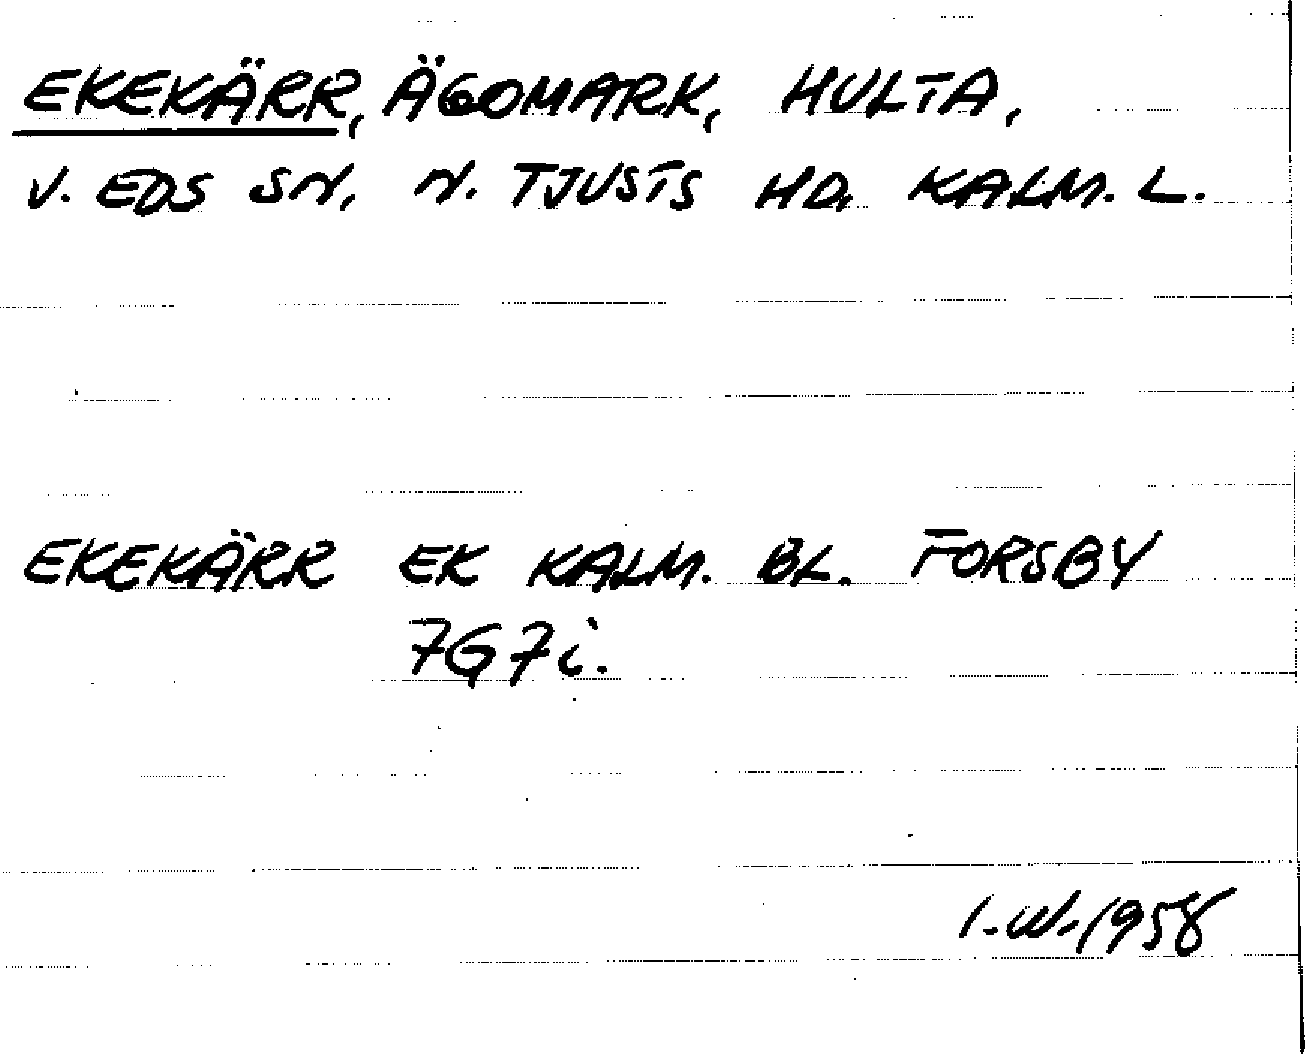 EKEKÄRR, ÄGOMARK, HULTA,
V. EDS SN, N. TJUSTS HD, KALM. L.
EKEKÄRR EK KALM. BL. FORSBY
7G7i.
I.W.1958